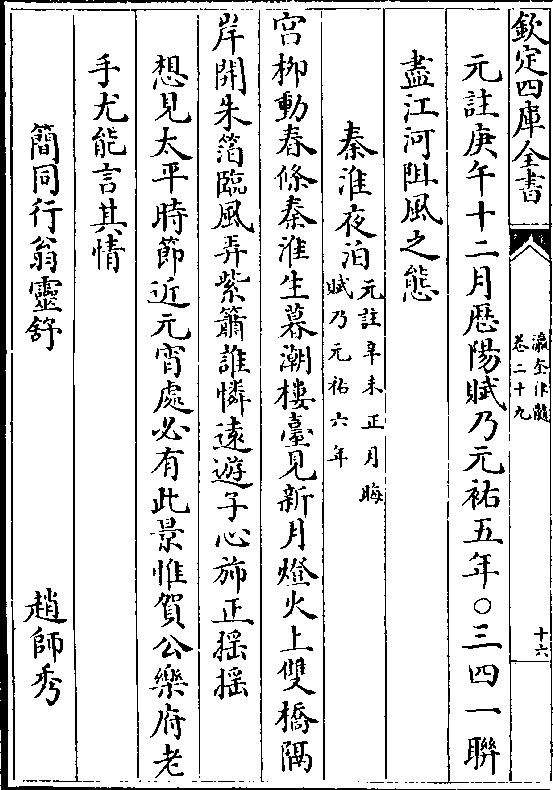 欽定四庫全書
瀛奎律髓
卷二十九
十六
元註庚午十二月厯陽賦乃元祐五年○三四一聯
盡江河阻風之態
秦淮夜泊元註辛未正月晦
賦乃元祐六年
宮柳動春條秦淮生暮潮樓臺見新月燈火上雙橋隔
岸開朱箔臨風弄紫簫誰憐逺遊子心旆正揺揺
想見太平時節近元宵處必有此景惟賀公樂府老
手尤能言其情
簡同行翁靈舒
趙師秀